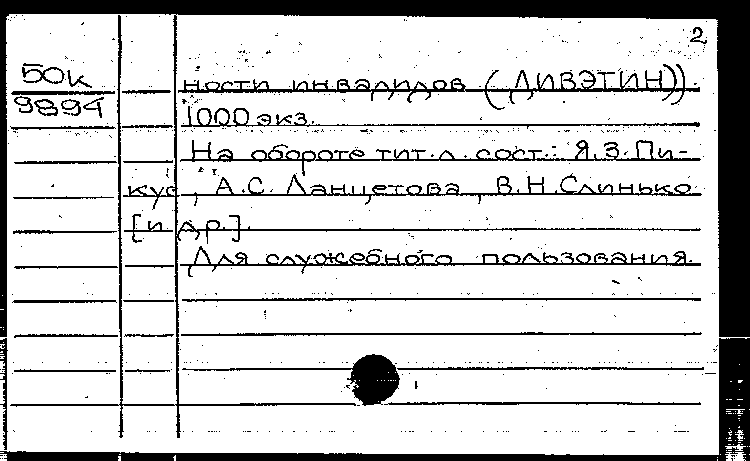 2
50к
9894
ности инвалидов (ДИВЭТИН)).
1000 экз.
На обороте тит. л. сост.: Я.З. Пи-
кус, А.С. Ланцетова, В.Н. Слинько
[и др.].
Для служебного пользования.